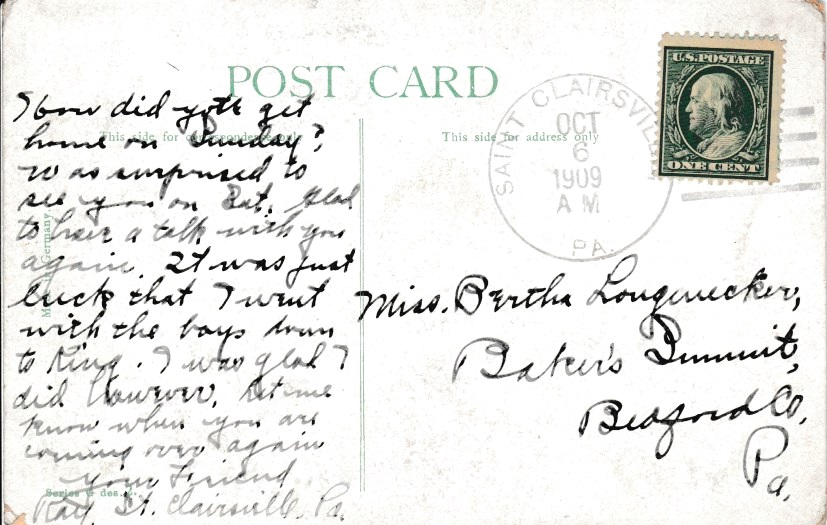 POST CARD
This side for correspondence only
This side for address only
U.S. POSTAGE
ONE CENT
SAINT CLAIRSVILLE
OCT
6
1909
A M
PA.
How did you get
home on Sunday?
Was surprised to
see you on Sat. Glad
to have a talk with you
again. It was just
luck that I went
with the boys down
to King. I was glad I
did however. Let me
know when you are
coming over again
Your Friend
Ray, St. Clairsville, Pa.
Miss. Bertha Longenecker,
Baker's Summit,
Bedford Co.
Pa.
Germany
Series 6 des.